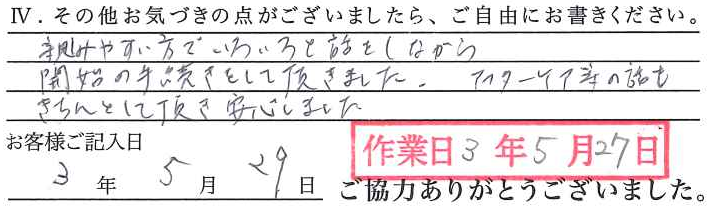 Ⅳ．その他お気づきの点がございましたら、ご自由にお書きください。
親しみやすい方でいろいろと話をしながら
開始の手続きをして頂きました。アフターケア等の話も
きちんとして頂き安心しました
お客様ご記入日
作業日3年5月27日
3年5月29日
ご協力ありがとうございました。